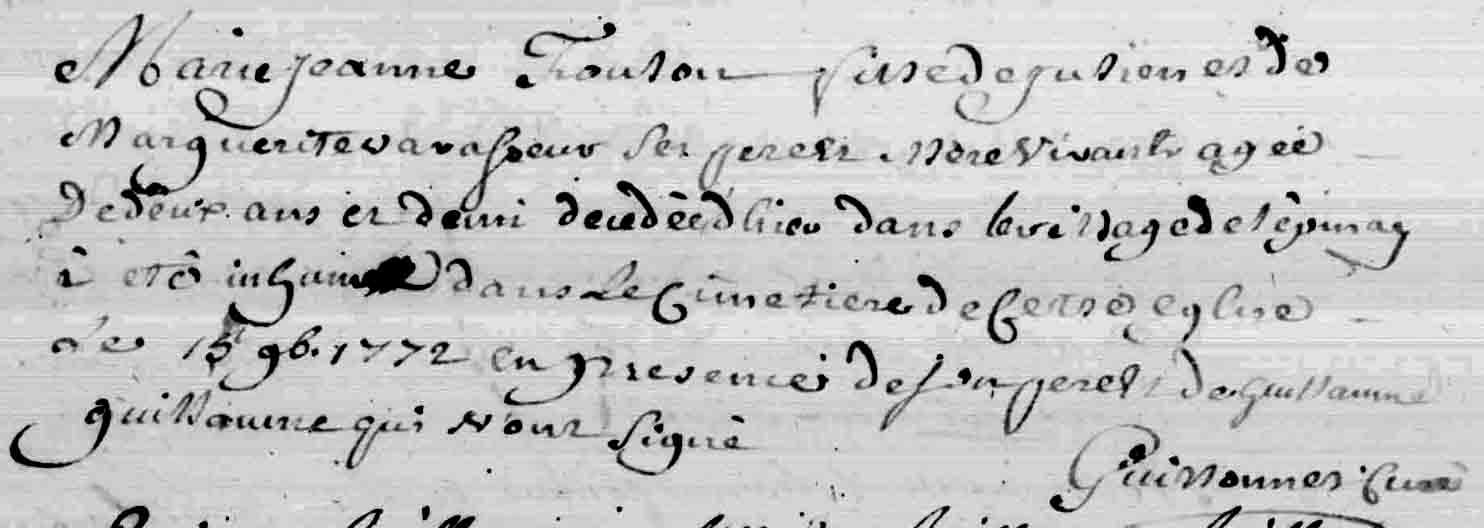 Marie jeanne Foulon fille de julien et de
Marguerite vavasseur ses pere et Mere vivants agée
De deux ans et demi decedée d'hier dans le village de l'épinay
à eté inhumée dans le Cimetiere de Cette eglise
Le 15 9b. 1772 en presence de son pere et de guillaume
guillaume qui N'ont Signé
curé